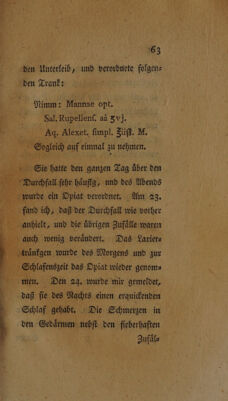 63
den Unterleib, und verordnete folgen-
den Trank:
Nimm: Mannae opt.
Sal. Rupellens. aā ʒvj.
Aq. Alexet. simpl. ℥iiſſ. M.
Sogleich auf einmal zu nehmen.
Sie hatte den ganzen Tag über den
Durchfall sehr häufig, und des Abends
wurde ein Opiat verordnet. Am 23.
fand ich, daß der Durchfall wie vorher
anhielt, und die übrigen Zufälle waren
auch wenig verändert. Das Laxier-
tränkgen wurde des Morgens und zur
Schlafenszeit das Opiat wieder genom-
men. Den 24. wurde mir gemeldet,
daß sie des Nachts einen erquickenden
Schlaf gehabt. Die Schmerzen in
den Gedärmen nebst den fieberhaften
Zufäl-